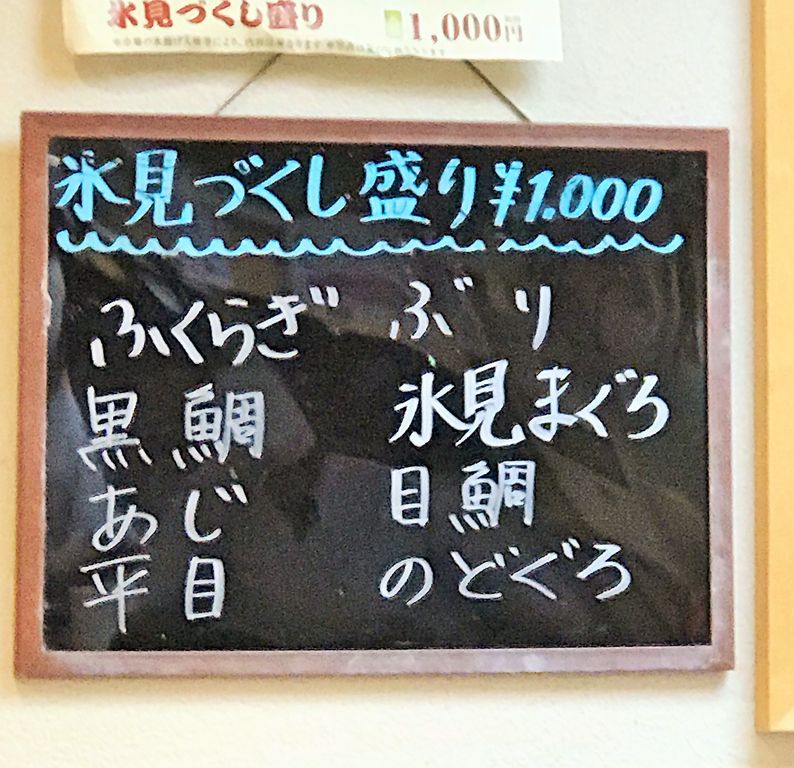 氷見づくし盛り 1,000円
氷見づくし盛り ¥1.000
ふくらぎ ぶり
黒鯛 氷見まぐろ
あじ 目鯛
平目 のどぐろ